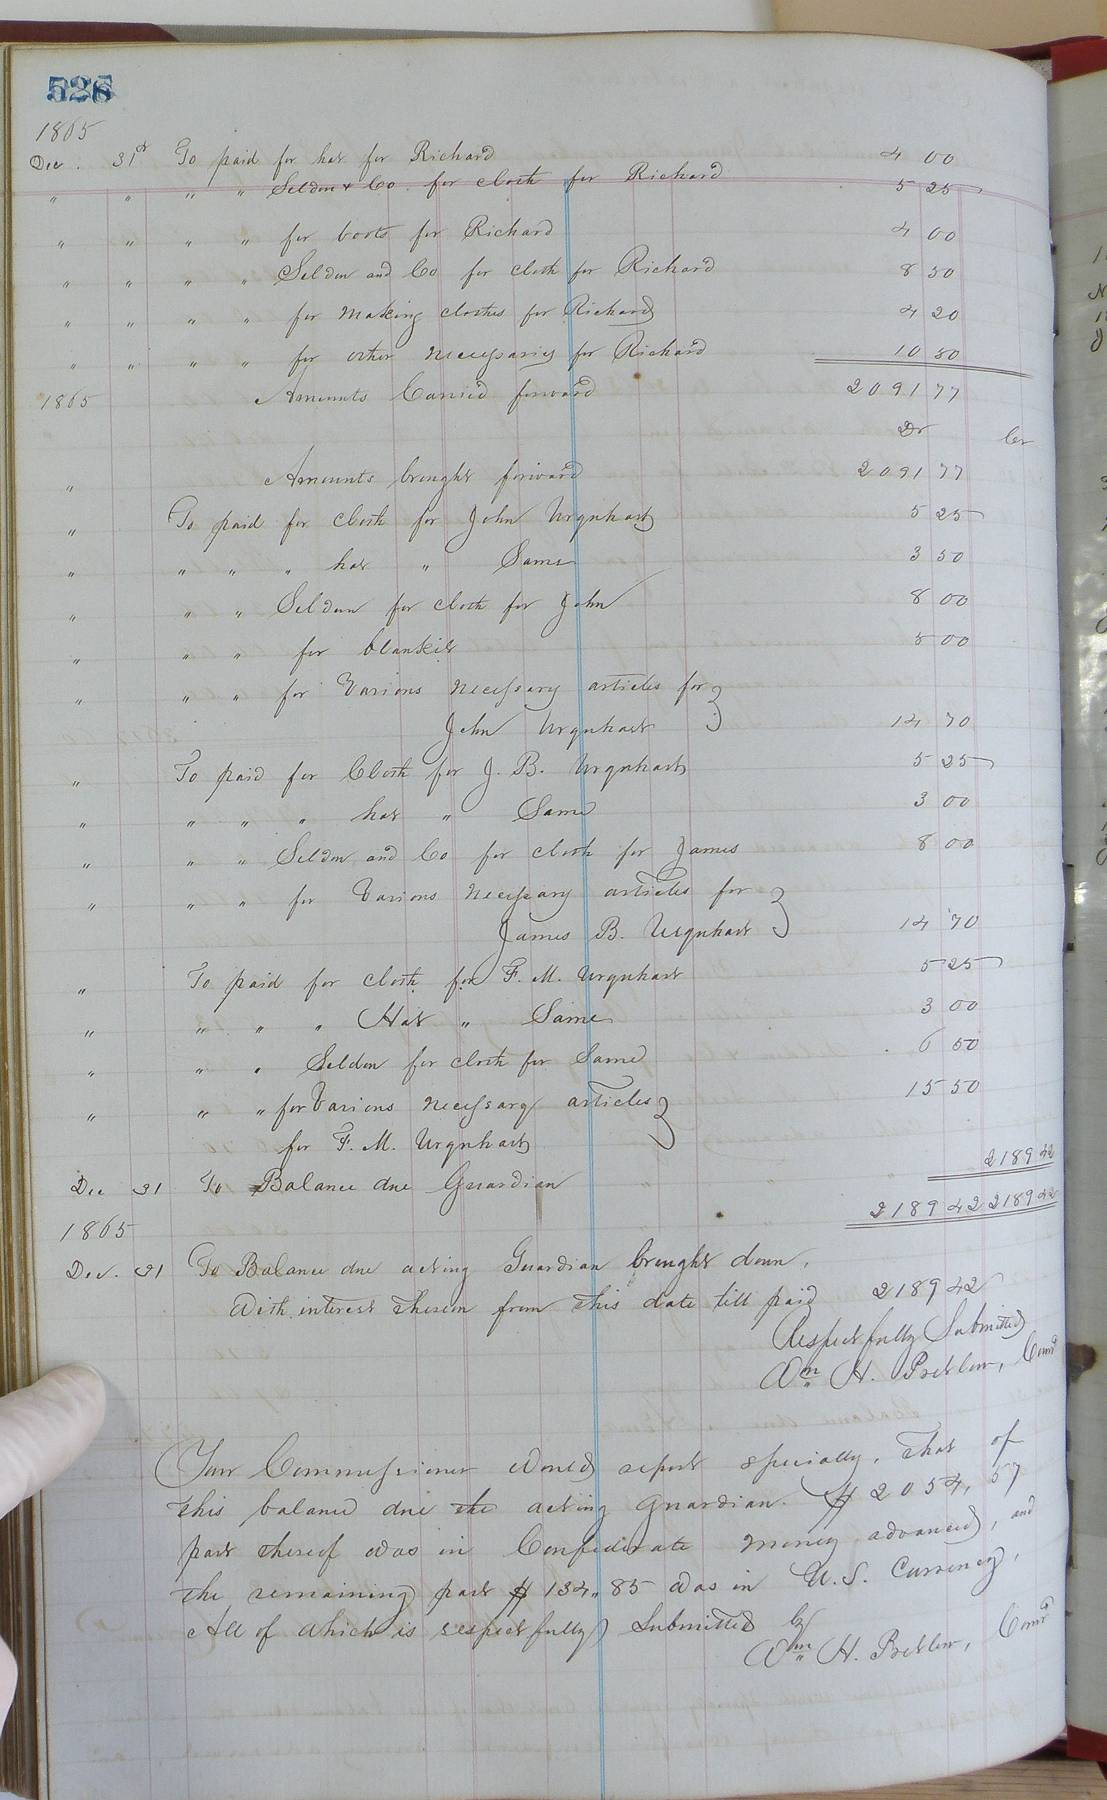 528
1865
Dec. 31st To paid for hat for Richard 4 00
" " " " Seldon & Co. for cloth for Richard 5 25
" " " " for boots for Richard 4 00
" " " " Seldon and Co for cloth for Richard 8 50
" " " " for making clothes for Richard 4 20
" " " " for other necessaries for Richard 10 50
1865 Amounts Carried forward 2091 77
Dr Cr
" Amounts brought forward 2091 77
" To paid for cloth for John Urquhart 5 25
" " " " hat " Same 3 50
" " " Seldon for cloth for John 8 00
" " " for blankets 5 00
" " " for Various necessary articles for
John Urquhart 14 70
" To paid for Cloth for J. B. Urquhart 5 25
" " " " hat " Same 3 00
" " " Seldon and Co for cloth for James 8 00
" " " for Various necessary articles for
James B. Urquhart 14 70
" To paid for cloth for F. M. Urquhart 5 25
" " " " Hat " Same 3 00
" " " Seldon for cloth for Same 6 50
" " " for Various necessary articles 15 50
for F. M. Urquhart
2189 42
Dec 31 To Balance due Guardian
2189 42 2189 42
1865
Dec. 31 To Balance due acting Guardian brought down,
With interest thereon from this date till paid 2189 42
Respectfully Submitted
Wm H. Pretlow, Comr
Your Commissioner would report specially, that of
this balance due the acting guardian. $2054,57
part thereof was in Confederate money advanced, and
the remaining part $134,,85 was in U.S. Currency,
All of which is respectfully Submitted by
Wm H. Pretlow, Comr